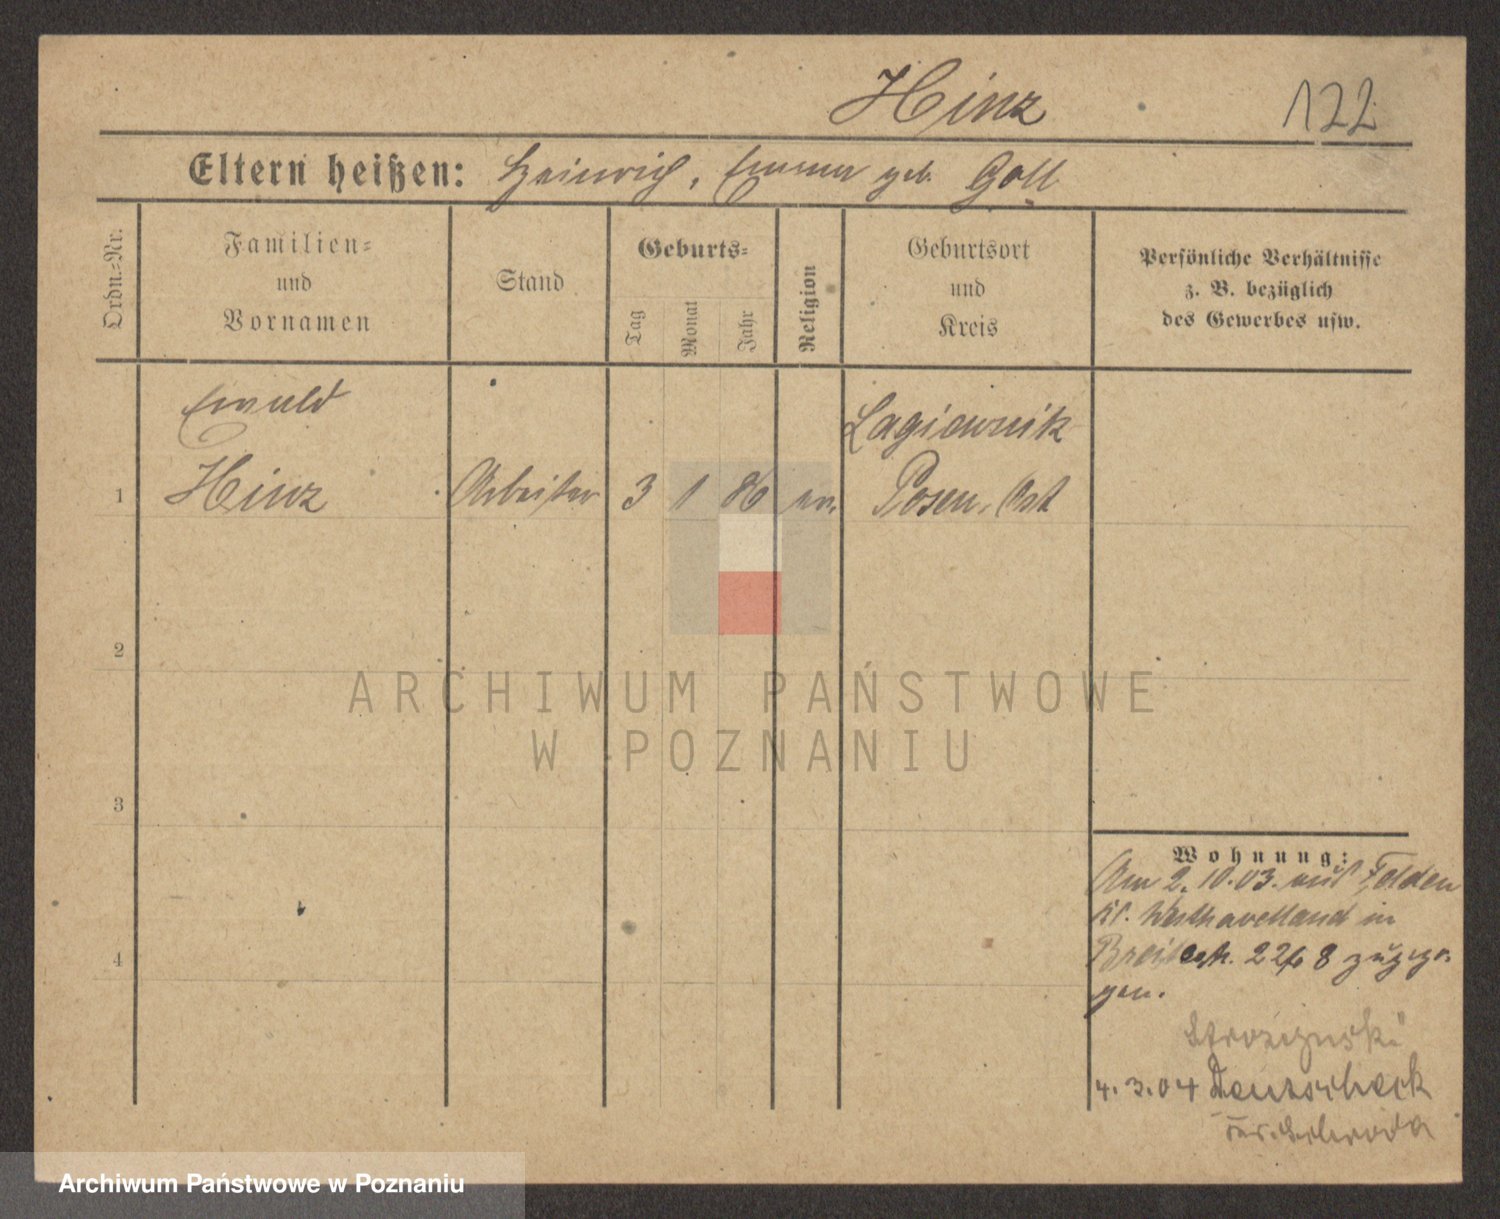 Hinz
122
Eltern heißen: Heinrich, Emma geb. Goll
Ordn.-Nr.
Familien-
und
Vornamen
Stand
Geburts-
Tag
Monat
Jahr
Religion
Geburtsort
und
Kreis
Persönliche Verhältnisse
z. B. bezüglich
des Gewerbes usw.
Ewald
Lagiewnik
1 Hinz Arbeiter 3 1 86 ev. Posen, Ost
2
3
4
Wohnung:
Am 2. 10. 03. aus Felden
Kr. Westhavelland in
Breitestr. 22 8 zugezo-
gen.
4. 3. 04 Deutscheck
Schroda
ARCHIWUM PAŃSTWOWE
W POZNANIU
Archiwum Państwowe w Poznaniu